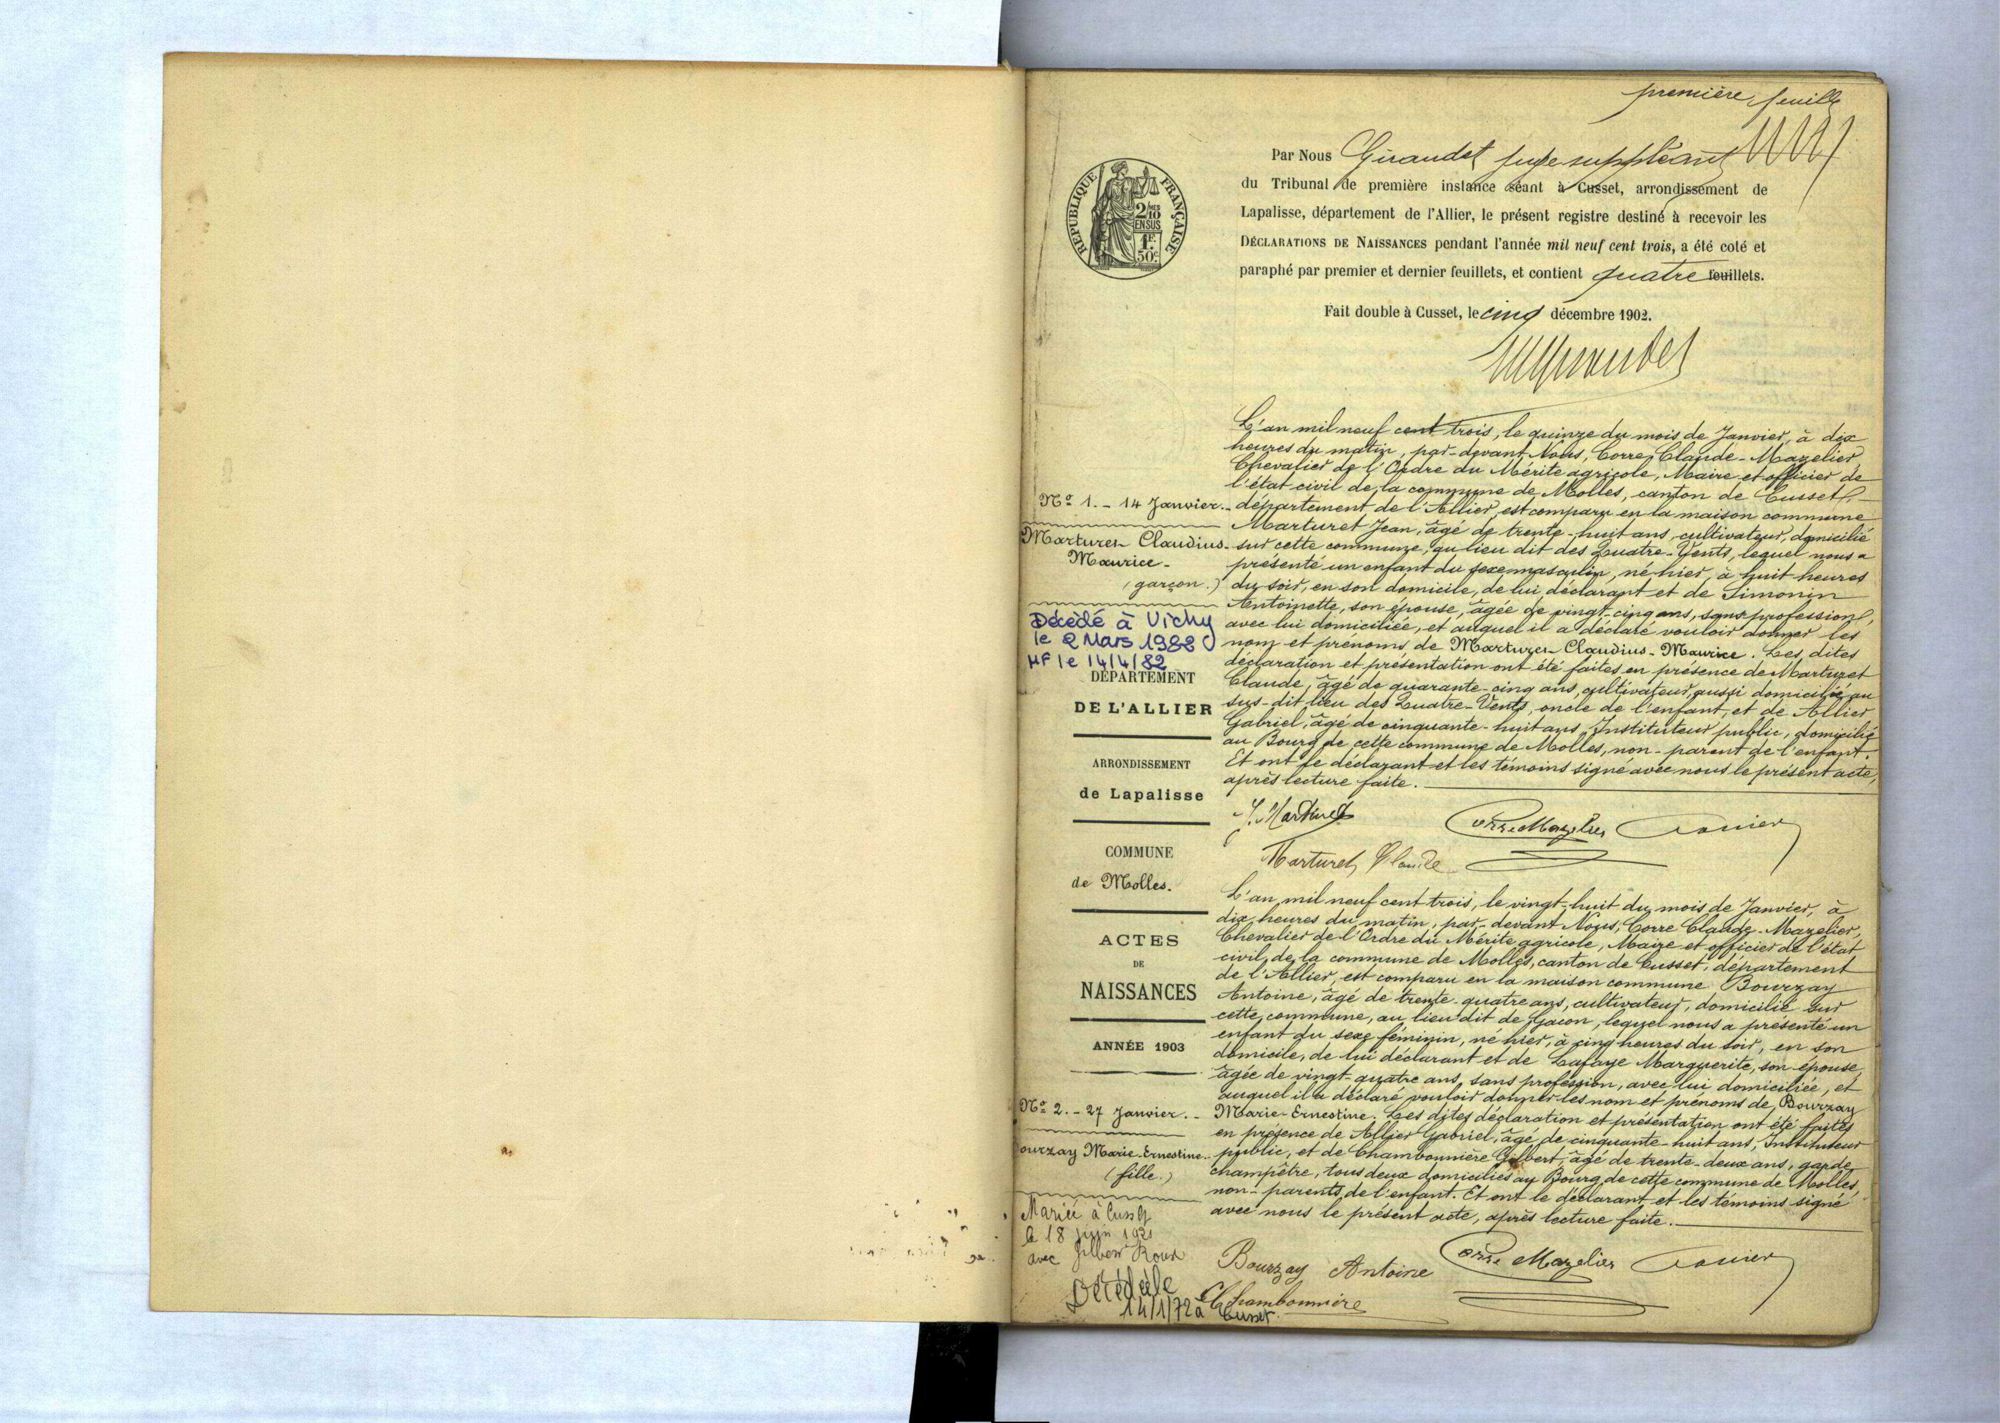 première feuille
Par Nous Giraudet juge suppléant
du Tribunal de première instance séant à Cusset, arrondissement de
Lapalisse, département de l'Allier, le présent registre destiné à recevoir les
DÉCLARATIONS DE NAISSANCES pendant l'année mil neuf cent trois, a été coté et
paraphé par premier et dernier feuillets, et contient quatre feuillets.
Fait double à Cusset, le cinq décembre 1902.
RÉPUBLIQUE FRANÇAISE
2/10
EN SUS
1F.
50c
Giraudet
L'an mil neuf cent trois, le quinze du mois de Janvier, à dix
heures du matin, par-devant Nous, Corre, Claude-Mazelier
Chevalier de l'Ordre du Mérite agricole, Maire et officier de
l'état civil de la commune de Molles, canton de Cusset,
département de l'Allier, est comparu en la maison commune
Marturet Jean, âgé de trente-huit ans, cultivateur, domicilié
sur cette commune, au lieu dit des Quatre-Vents, lequel nous a
présenté un enfant du sexe masculin, né hier, à huit heures
du soir, en son domicile, de lui déclarant et de Simonin
Antoinette, son épouse, âgée de vingt-cinq ans, sans profession,
avec lui domiciliée, et auquel il a déclaré vouloir donner les
nom et prénoms de Marturet Claudius-Maurice. Les dites
déclaration et présentation ont été faites en présence de Marturet
Claude, âgé de quarante-cinq ans, cultivateur, aussi domicilié au
sus-dit lieu des Quatre-Vents, oncle de l'enfant, et de Allier
Gabriel, âgé de cinquante-huit ans, Instituteur public, domicilié
au Bourg de cette commune de Molles, non-parent de l'enfant.
Et ont le déclarant et les témoins signé avec nous le présent acte,
après lecture faite.
J. Marturet
Corre Mazelier
Marturet Claude
No 1. - 14 Janvier.
Marturet Claudius-
Maurice-
(garçon.)
Décédé à Vichy
le 2 Mars 1982
MF le 14/4/82
DÉPARTEMENT
DE L'ALLIER
ARRONDISSEMENT
de Lapalisse
COMMUNE
de Molles.
ACTES
DE
NAISSANCES
ANNÉE 1903
L'an mil neuf cent trois, le vingt-huit du mois de Janvier, à
dix heures du matin, par-devant Nous, Corre Claude-Mazelier,
Chevalier de l'Ordre du Mérite agricole, Maire et officier de l'état
civil de la commune de Molles, canton de Cusset, département
de l'Allier, est comparu en la maison commune Bourzay
Antoine, âgé de trente-quatre ans, cultivateur, domicilié sur
cette commune, au lieu dit de Gacon, lequel nous a présenté un
enfant du sexe féminin, né hier, à cinq heures du soir, en son
domicile, de lui déclarant et de Lafaye Marguerite, son épouse,
âgée de vingt-quatre ans, sans profession, avec lui domiciliée, et
auquel il a déclaré vouloir donner les nom et prénoms de Bourzay
Marie-Ernestine. Les dites déclaration et présentation ont été faites
en présence de Allier Gabriel, âgé de cinquante-huit ans, Instituteur
public, et de Chambonnière Gilbert, âgé de trente-deux ans, garde
champêtre, tous deux domiciliés au Bourg de cette commune de Molles,
non-parents de l'enfant. Et ont le déclarant et les témoins signé
avec nous le présent acte, après lecture faite.
Bourzay Antoine
Corre Mazelier
Chambonnière
No 2. - 27 Janvier.
ourzay Marie-Ernestine
(fille.)
Mariée à Cusset
le 18 juin 1921
avec Gilbert Roux
Décédée le
14/1/72 à Cusset.